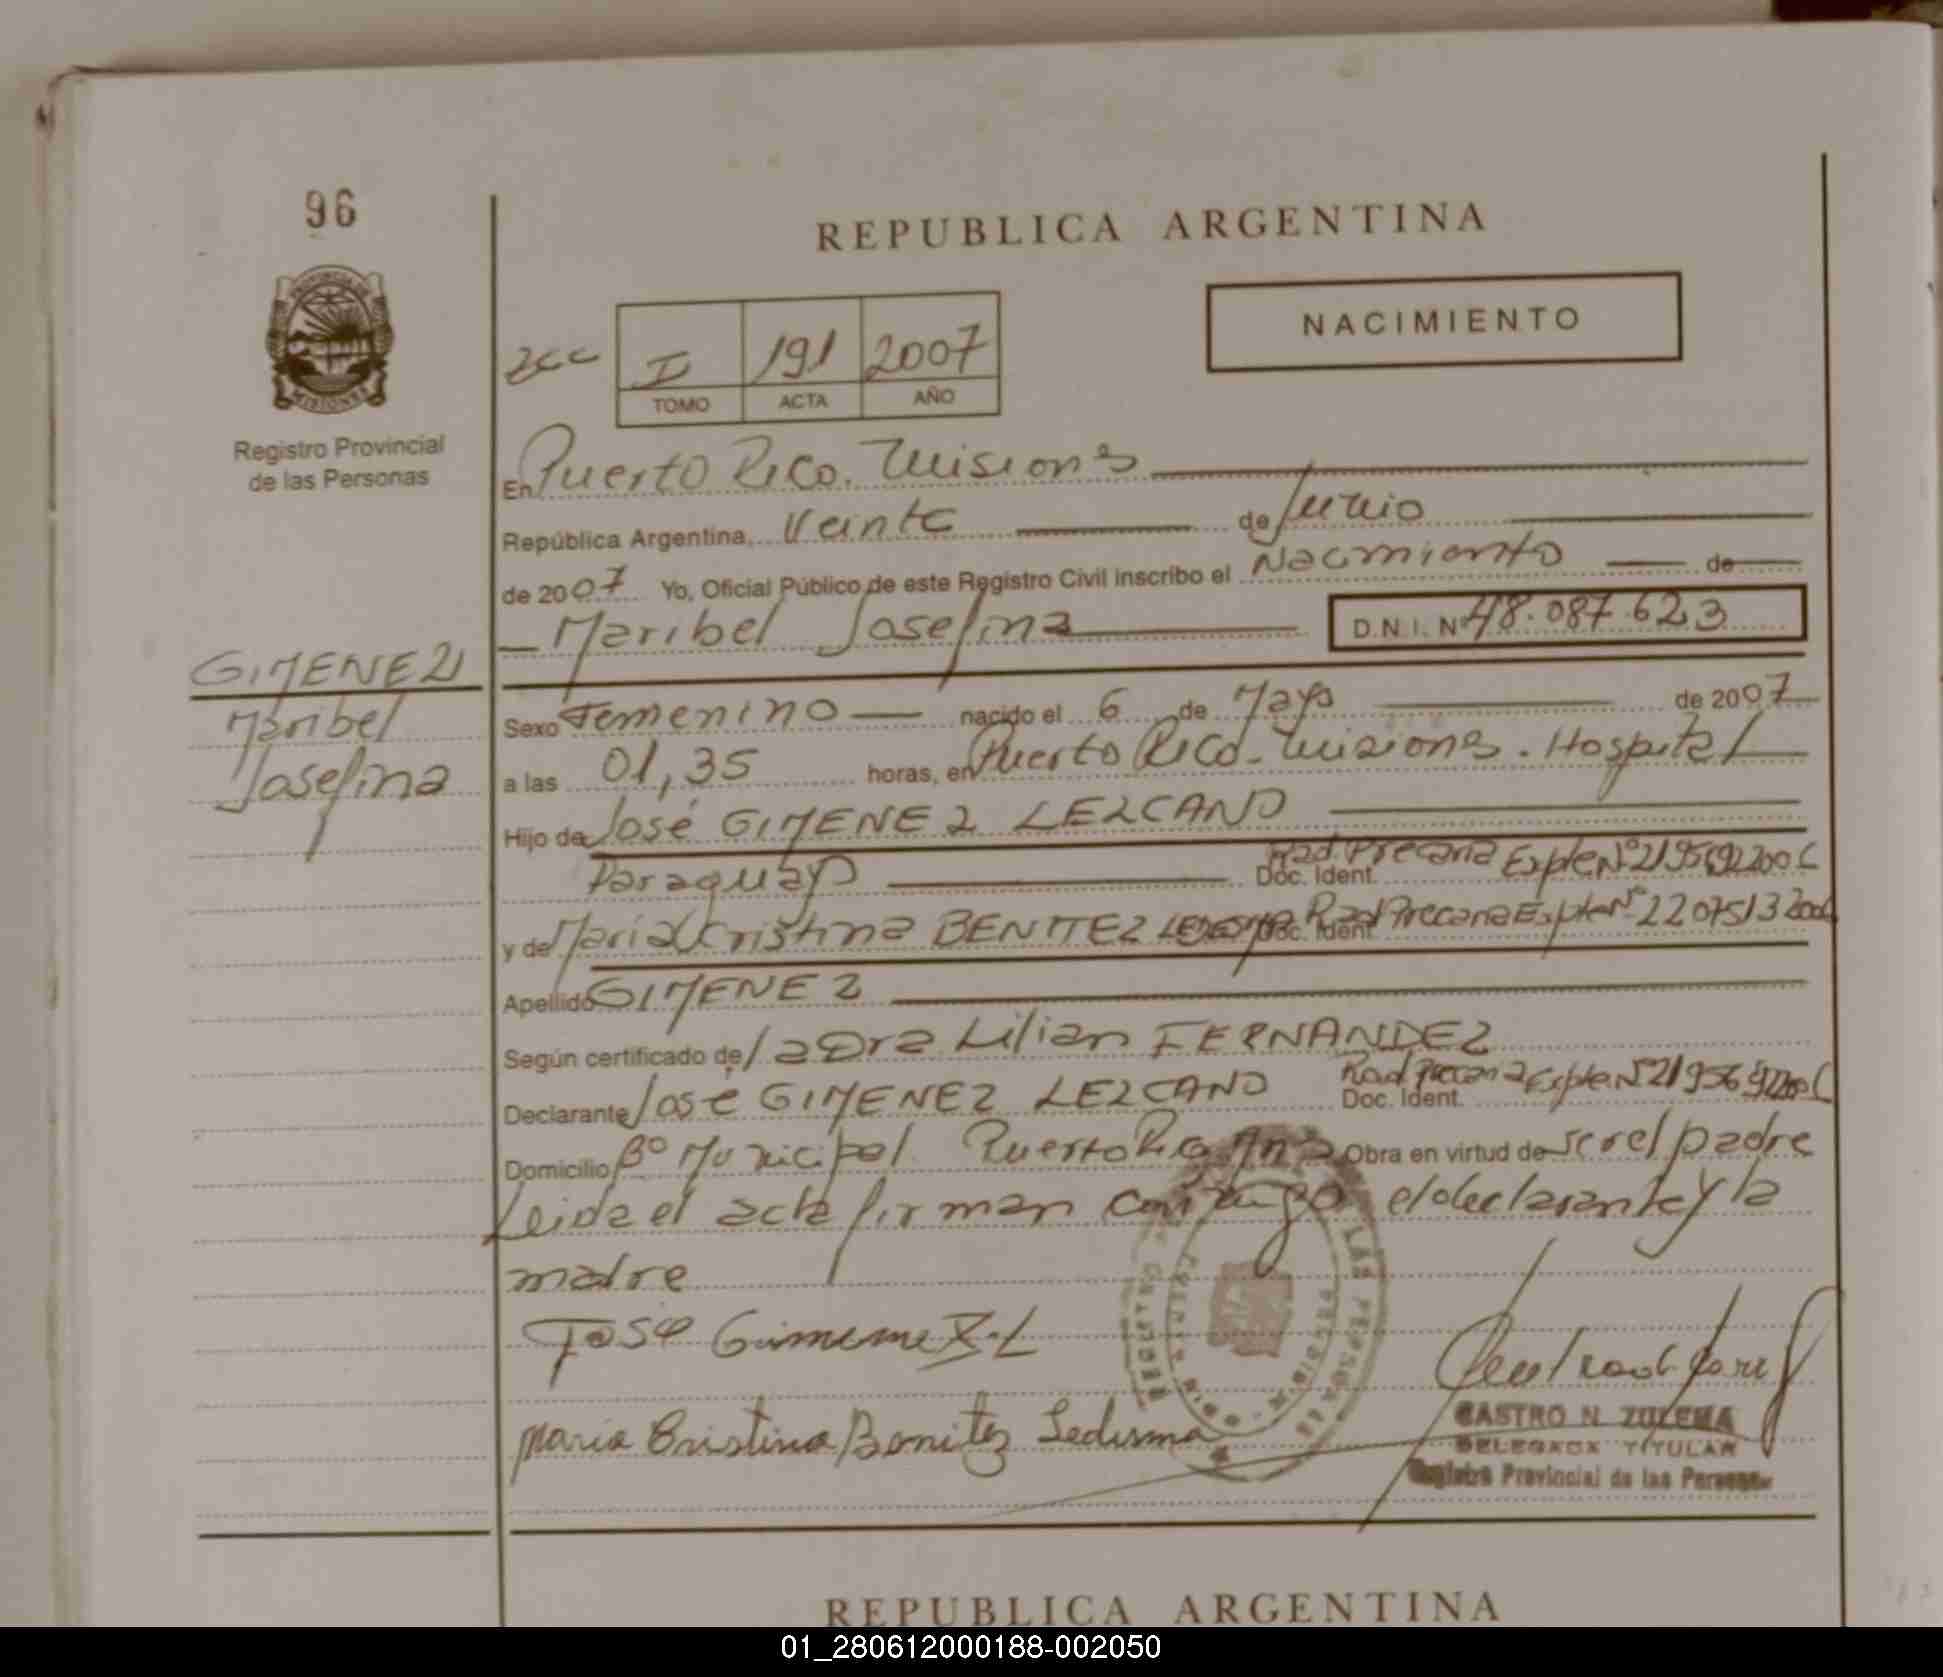 96
REPUBLICA ARGENTINA
NACIMIENTO
I 191 2007
TOMO ACTA AÑO
PROVINCIA DE
MISIONES
Registro Provincial
de las Personas
En Puerto Rico. Misiones
República Argentina, Veinte de Junio
de 2007 Yo, Oficial Público de este Registro Civil inscribo el Nacimiento de
Maribel Josefina D.N.I. Nº 48.087.623
GIMENEZ
Maribel
Josefina
Sexo Femenino nacido el 6 de Mayo de 2007
a las 01,35 horas, en Puerto Rico. Misiones. Hospital
Hijo de José GIMENEZ LEZCANO
Paraguayo Doc. Ident. Rad. Precaria Expte Nº
y de María Cristina BENITEZ LEDESMA Doc. Ident. Rad Precaria Expte Nº
Apellido GIMENEZ
Según certificado de la Dra Lilian FERNANDEZ
Declarante José GIMENEZ LEZCANO Doc. Ident. Rad Precaria Expte Nº
Domicilio Bº Municipal. Puerto Rico Obra en virtud de ser el padre
Leida el acta firman conmigo el declarante y la
madre
José Gimenez L
Maria Cristina Benitez Ledesma
CASTRO N. ZULEMA
DELEGADA TITULAR
Registro Provincial de las Personas
REPUBLICA ARGENTINA
01_280612000188-002050